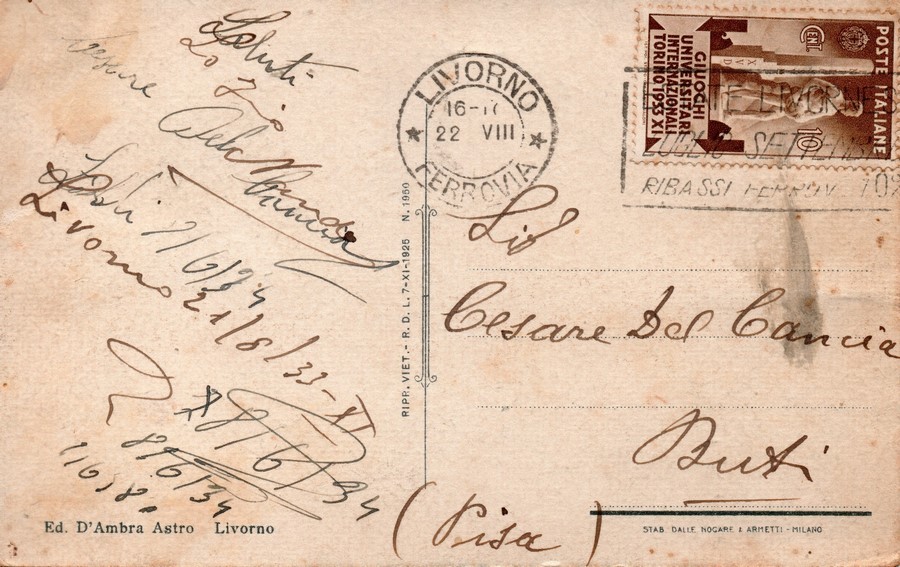 Saluti
Lo Zio
Cesare
Del Cancia
Livorno 21/8/33-XI
8/6/34
8/6/34
Ed. D'Ambra Astro Livorno
RIPR. VIET. - R. D. L. 7-XI-1925 N. 1950
LIVORNO
16-17
22 VIII
FERROVIA
POSTE ITALIANE
CENT
10
GIUOCHI
UNIVERSITARI
INTERNAZIONALI
TORINO 1933 XI
LIVORNESE
LUGLIO SETTEMBRE
RIBASSI FERROV. 70%
Sig
Cesare Del Cancia
Buti
(Pisa)
STAB. DALLE NOGARE & ARMETTI - MILANO